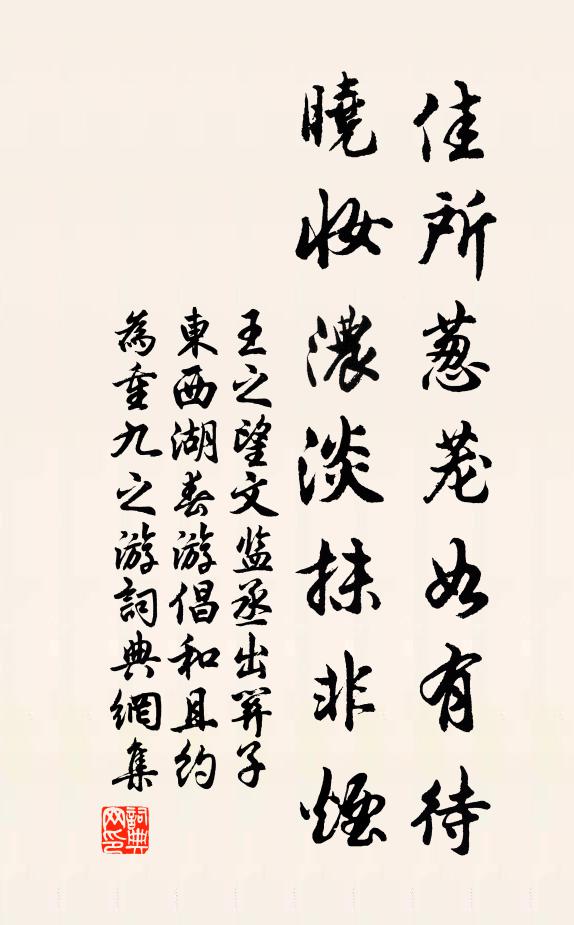 佳所葱茏如有待
曉妝濃淡抹非煙
王之望文监丞出羿子
東西湖春游倡和且约
為重九之游詞典網集
詞典网印